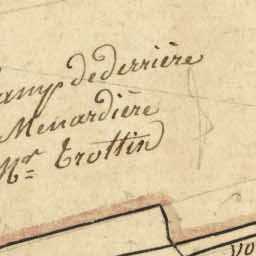 amp dederrière
Menardière
Mr= Trottin
vo